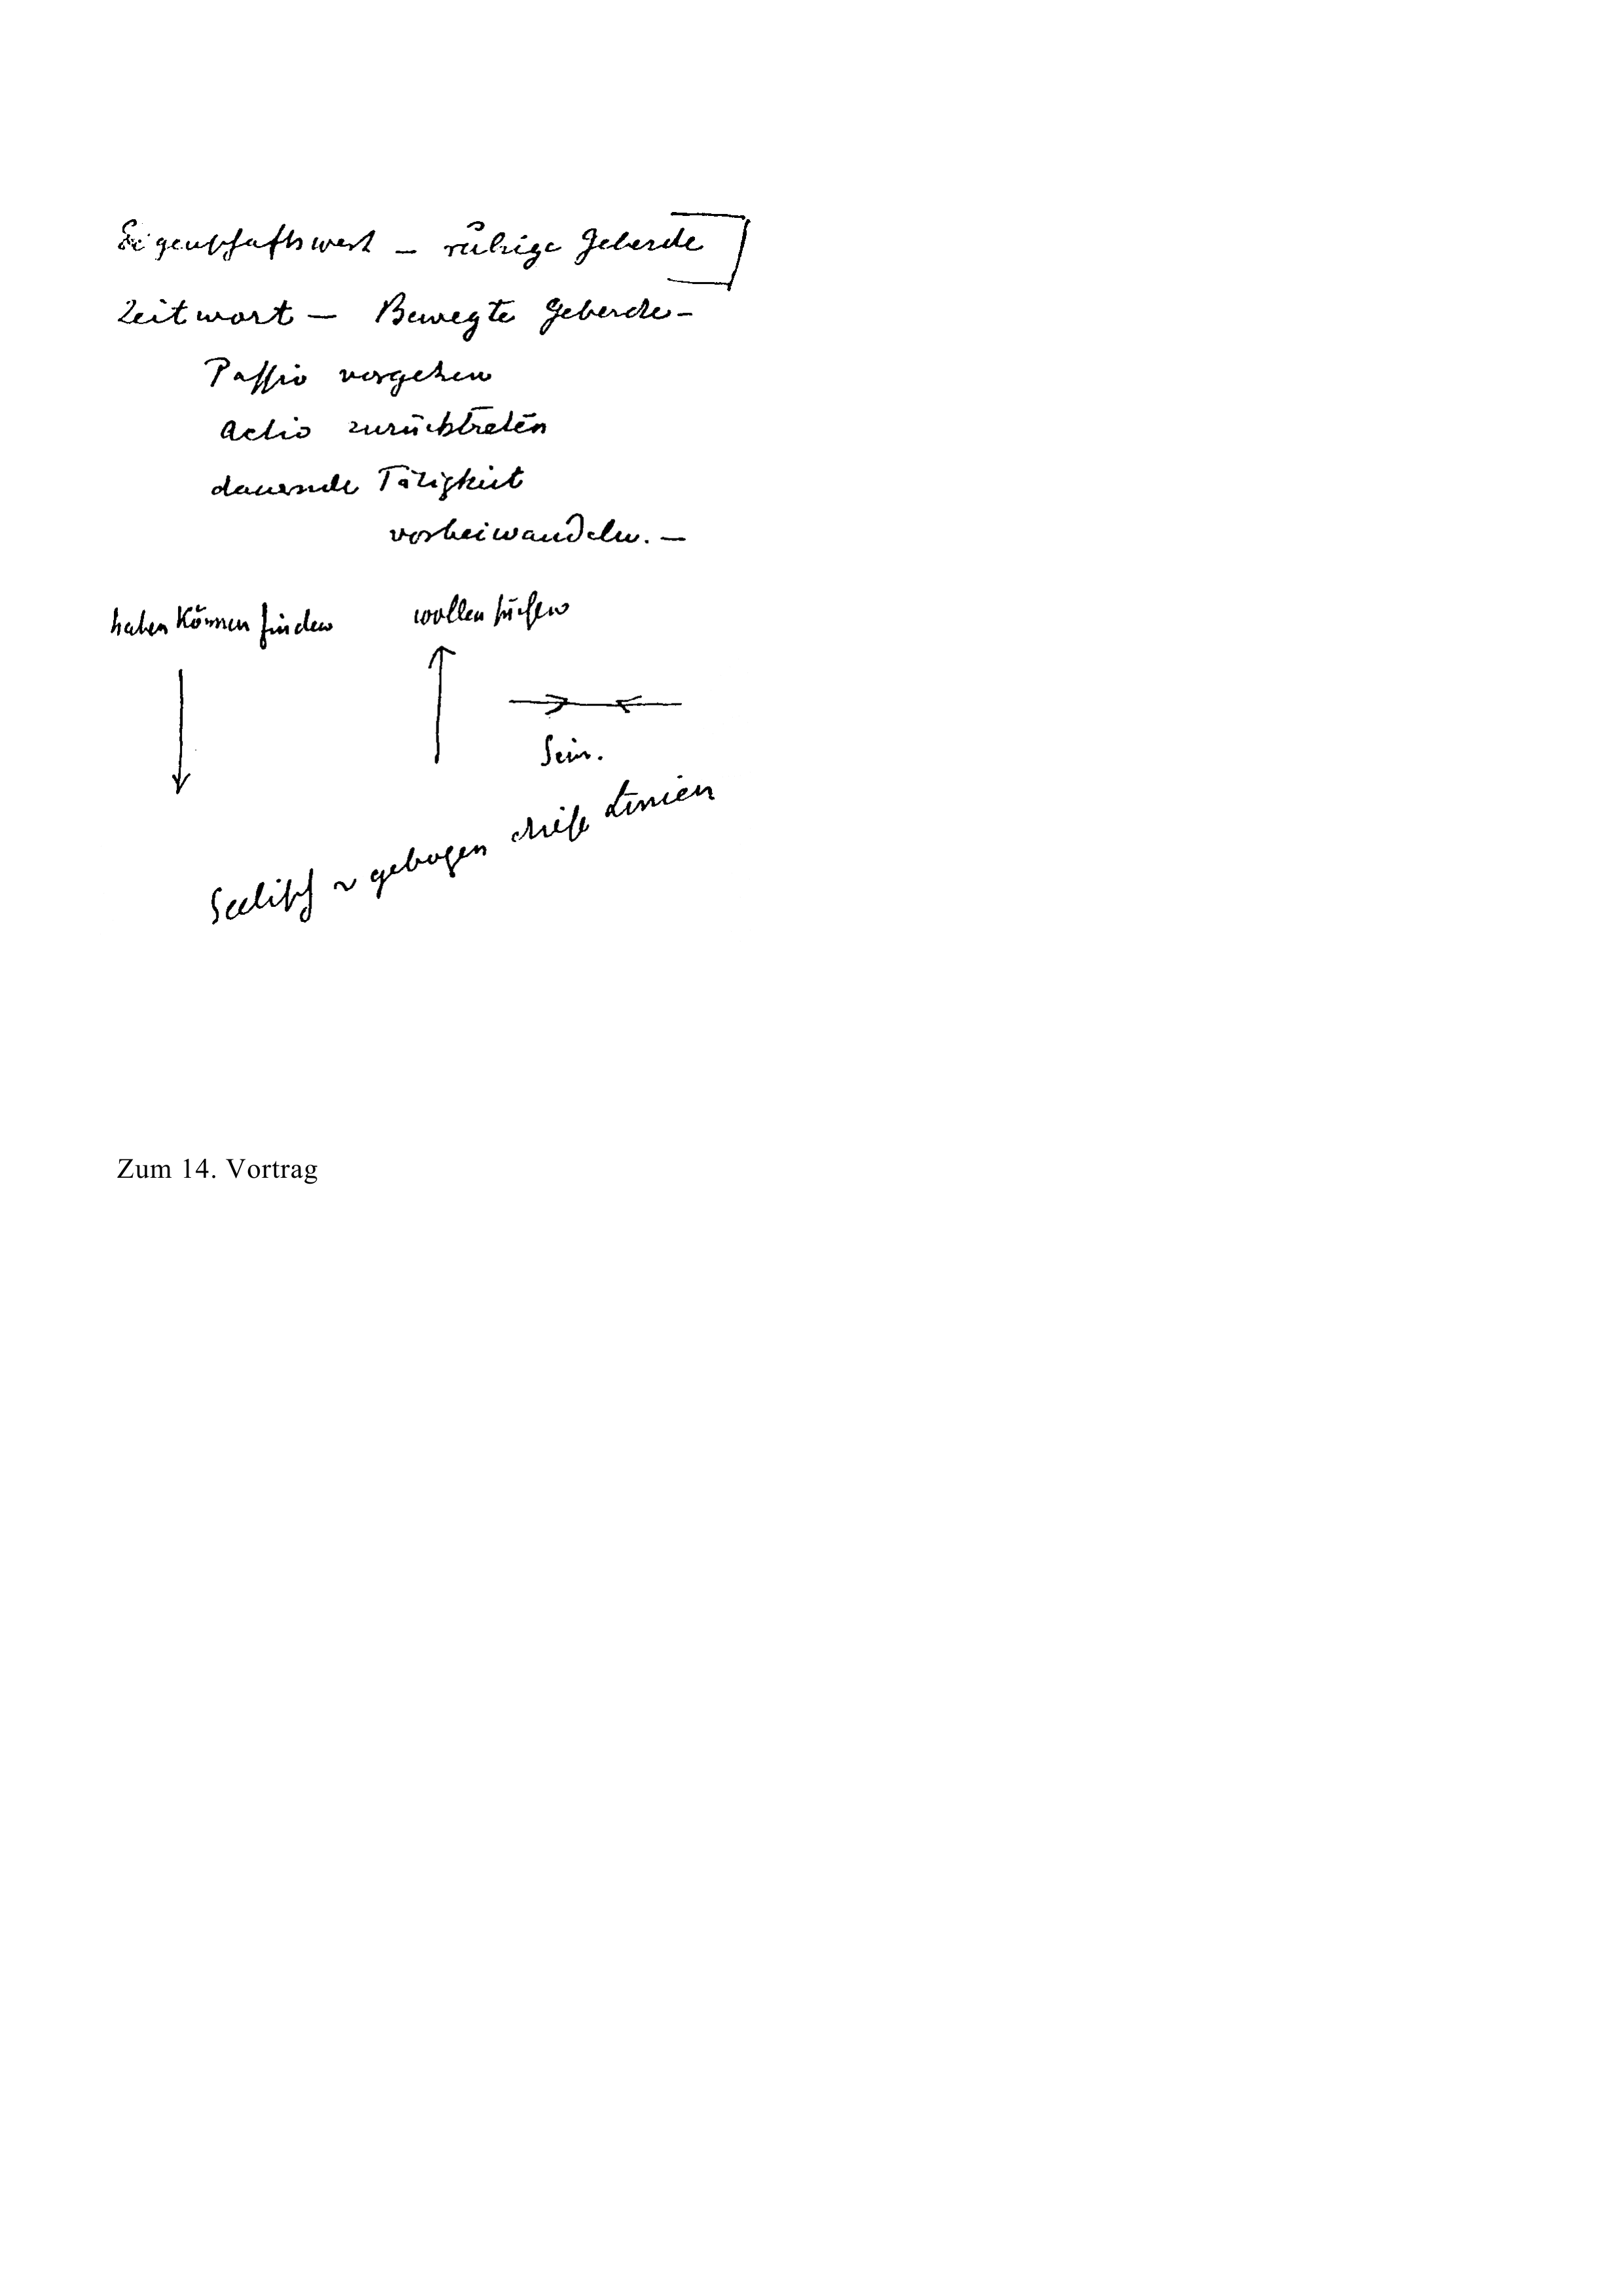 Eigenschaftswort – ruhige Geberde
Zeitwort – Bewegte Geberde –
Passio vorgehen
Actio zurücktreten
dauernde Tätigkeit
vorbeiwandeln. –
haben können finden wollen
Sein.
Seelisch gebogen Linien
Zum 14. Vortrag